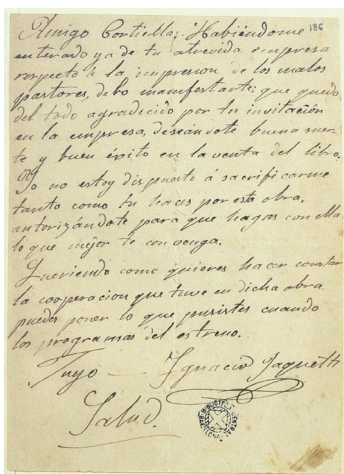 186
Amigo Cortiella; Habiéndome
enterado ya de tu atrevida empresa
respecto á la impresion de los malos
pastores, debo manifestarte; que quedo
del todo agradecido por tu invitación
en la empresa, deseándote buena suer-
te y buen éxito en la venta del libro.
Yo no estoy dispuesto á sacrificarme
tanto como tu haces por esta obra,
autorizándote para que hagas con ella
lo que mejor te convenga.
Queriendo como quieres hacer constar
la cooperacion que tuve en dicha obra
puedes poner lo que pusistes cuando
los programas del estreno.
Tuyo — Ignacio
Salud.